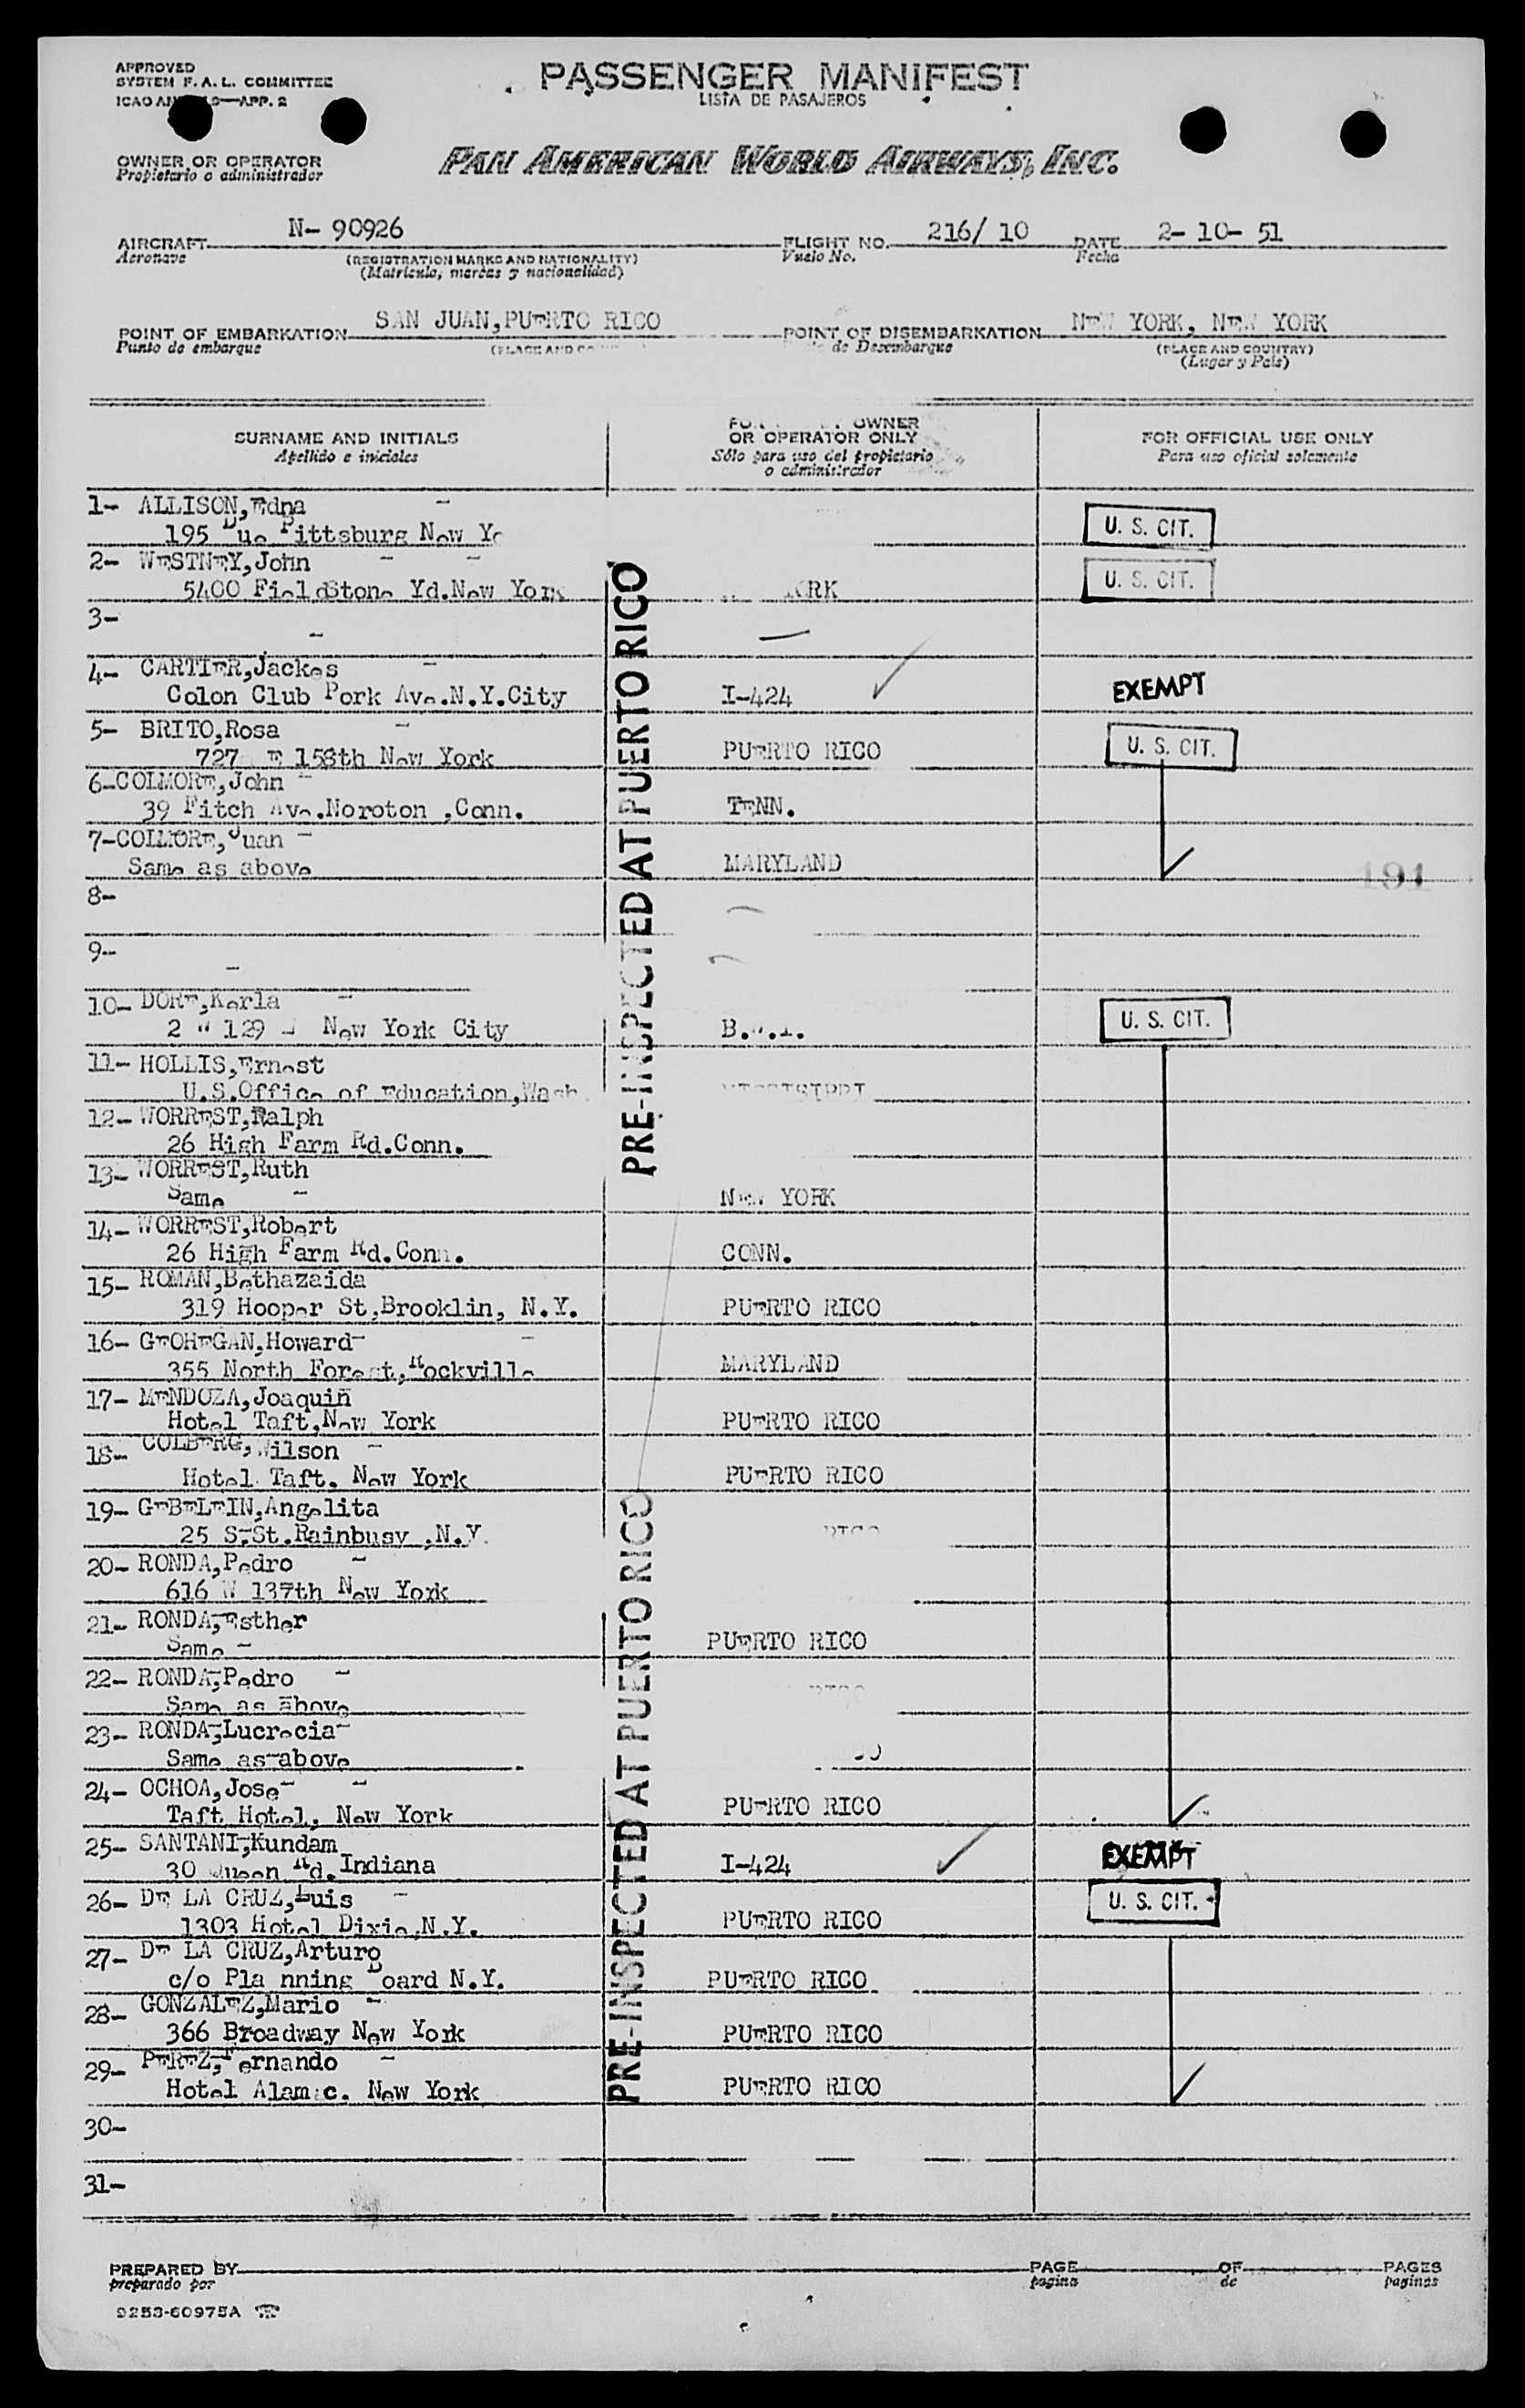 APPROVED
SYSTEM F. A. L. COMMITTEE
ICAO 9—APP. 2
PASSENGER MANIFEST
LISTA DE PASAJEROS
OWNER OR OPERATOR
Propietario o administrador
PAN AMERICAN WORLD AIRWAYS, INC.
AIRCRAFT N- 90926 FLIGHT NO. 216/ 10 DATE 2- 10- 51
Aeronave (REGISTRATION MARKS AND NATIONALITY) Vuelo No. Fecha
(Matricula, marcas y nacionalidad)
POINT OF EMBARKATION SAN JUAN,PUERTO RICO POINT OF DISEMBARKATION NEW YORK, NEW YORK
Punto de embarque (PLACE AND de Desembarque (PLACE AND COUNTRY)
(Lugar y Pais)
SURNAME AND INITIALS
Apellido e iniciales
OWNER
OR OPERATOR ONLY
Sólo para uso del propietario
o administrador
FOR OFFICIAL USE ONLY
Para uso oficial solamente
PRE-INSPECTED AT PUERTO RICO
1- ALLISON,Edna -
195 Pittsburg New U. S. CIT.
2- WESTNEY,John - -
5400 Fieldstone Yd.New York U. S. CIT.
3-
-
4- CARTIER,Jackes -
Colon Club Pork Ave.N.Y.City I-424 EXEMPT
5- BRITO,Rosa -
727 E 158th New York PUERTO RICO U. S. CIT.
6-COLMORE,John -
39 Fitch Ave.Noroton ,Conn. TENN.
7-COLMORE,Juan -
Same as above MARYLAND
191
8-
9-
-
10- DORE,Kerla -
2 129 New York City B.W.I. U. S. CIT.
11- HOLLIS,Ernest
U.S.Office of Education,Wash.
12- WORREST,Ralph
26 High Farm Rd.Conn.
13- WORREST,Ruth
Same - NEW YORK
14- WORREST,Robert
26 High Farm Rd.Conn. CONN.
15- ROMAN,Bethazaida
319 Hooper St,Brooklin, N.Y. PUERTO RICO
16- GEOHEGAN,Howard- -
355 North Forest,Rockville MARYLAND
17- MENDOZA,Joaquin
Hotel Taft,New York PUERTO RICO
18- COLBERG,Wilson -
Hotel Taft. New York PUERTO RICO
PRE-INSPECTED AT PUERTO RICO
19- GEBELEIN,Angelita
25 S.St.Rainbusy ,N.Y. RICO
20- RONDA,Pedro -
616 W 137th New York
21- RONDA,Esther
Same - PUERTO RICO
22- RONDA,Pedro -
Same as above
23- RONDA,Lucrecia-
Same as above
24- OCHOA,Jose- -
Taft Hotel, New York PUERTO RICO
25- SANTANI,Kundam
30 Queen Rd.Indiana I-424 EXEMPT
26- DE LA CRUZ,Luis -
1303 Hotel Dixie,N.Y. PUERTO RICO U. S. CIT.
27- DE LA CRUZ,Arturo
c/o Pla nning Board N.Y. PUERTO RICO
28- GONZALEZ,Mario -
366 Broadway New York PUERTO RICO
29- PEREZ,Fernando -
Hotel Alamac. New York PUERTO RICO
30-
31-
PREPARED BY PAGE OF PAGES
preparado por pagina de paginas
9253-60975A